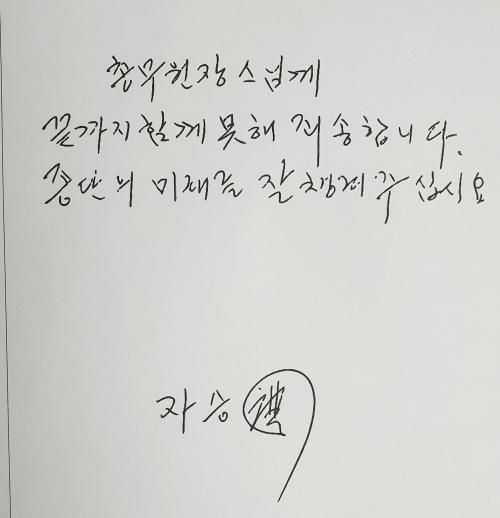 총무원장스님께
끝까지함께못해 죄송합니다.
종단의 미래를 잘 챙겨주십시요
자승